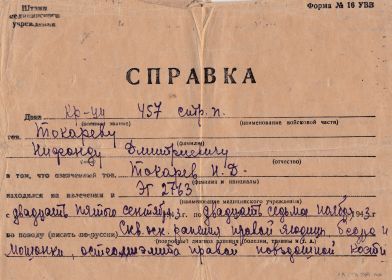 Штамп
медицинского
учреждения
Форма № 16 УВВ
СПРАВКА
Дана кр-цу 457 стр. п.
(военное звание) (наименование войсковой части)
тов. Токареву
(фамилия)
Дмитриевичу
(отчество)
в том, что означенный тов. Токарев Н. Д.
(фамилия и инициалы)
находился на излечении в ЭГ 2763
(наименование медицинского учреждения)
с двадцать пятого сентября 43 г. по двадцать седьмое ноября 1943 г.
по поводу (писать по-русски) ранения правой ягодицы, бедра и
(подробный диагноз ранения, болезни, травмы и т. д.)
мошонки, остеомиэлита правой подвздошной кости